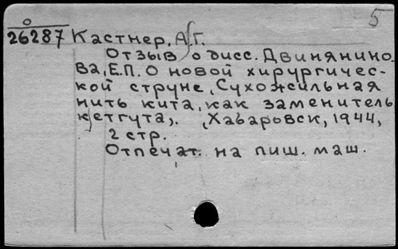 5
О
26287 Кастнер, А.Г.
Отзыв о дисс. Двинянино-
ва, Е.П. О новой хирургичес-
кой струне, Сухожильная
нить кита, как заменитель
кетгута). (Хабаровск, 1944,
2 стр.
Отпечат. на пиш. маш.